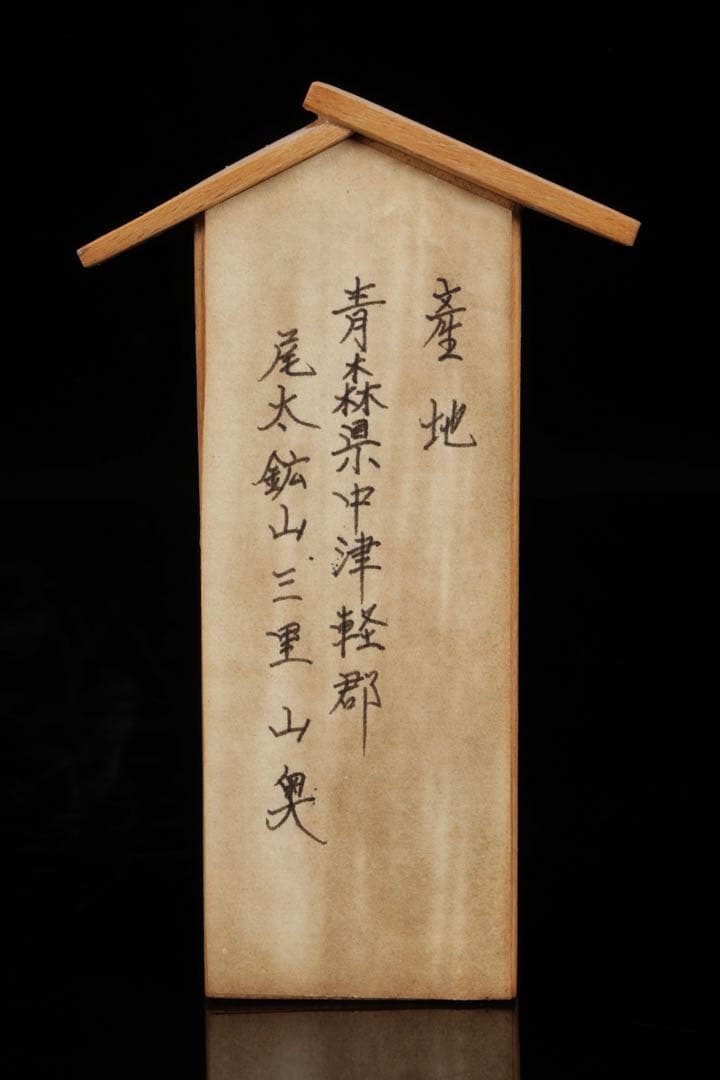 産地
青森県中津軽郡
尾太鉱山三里山奥